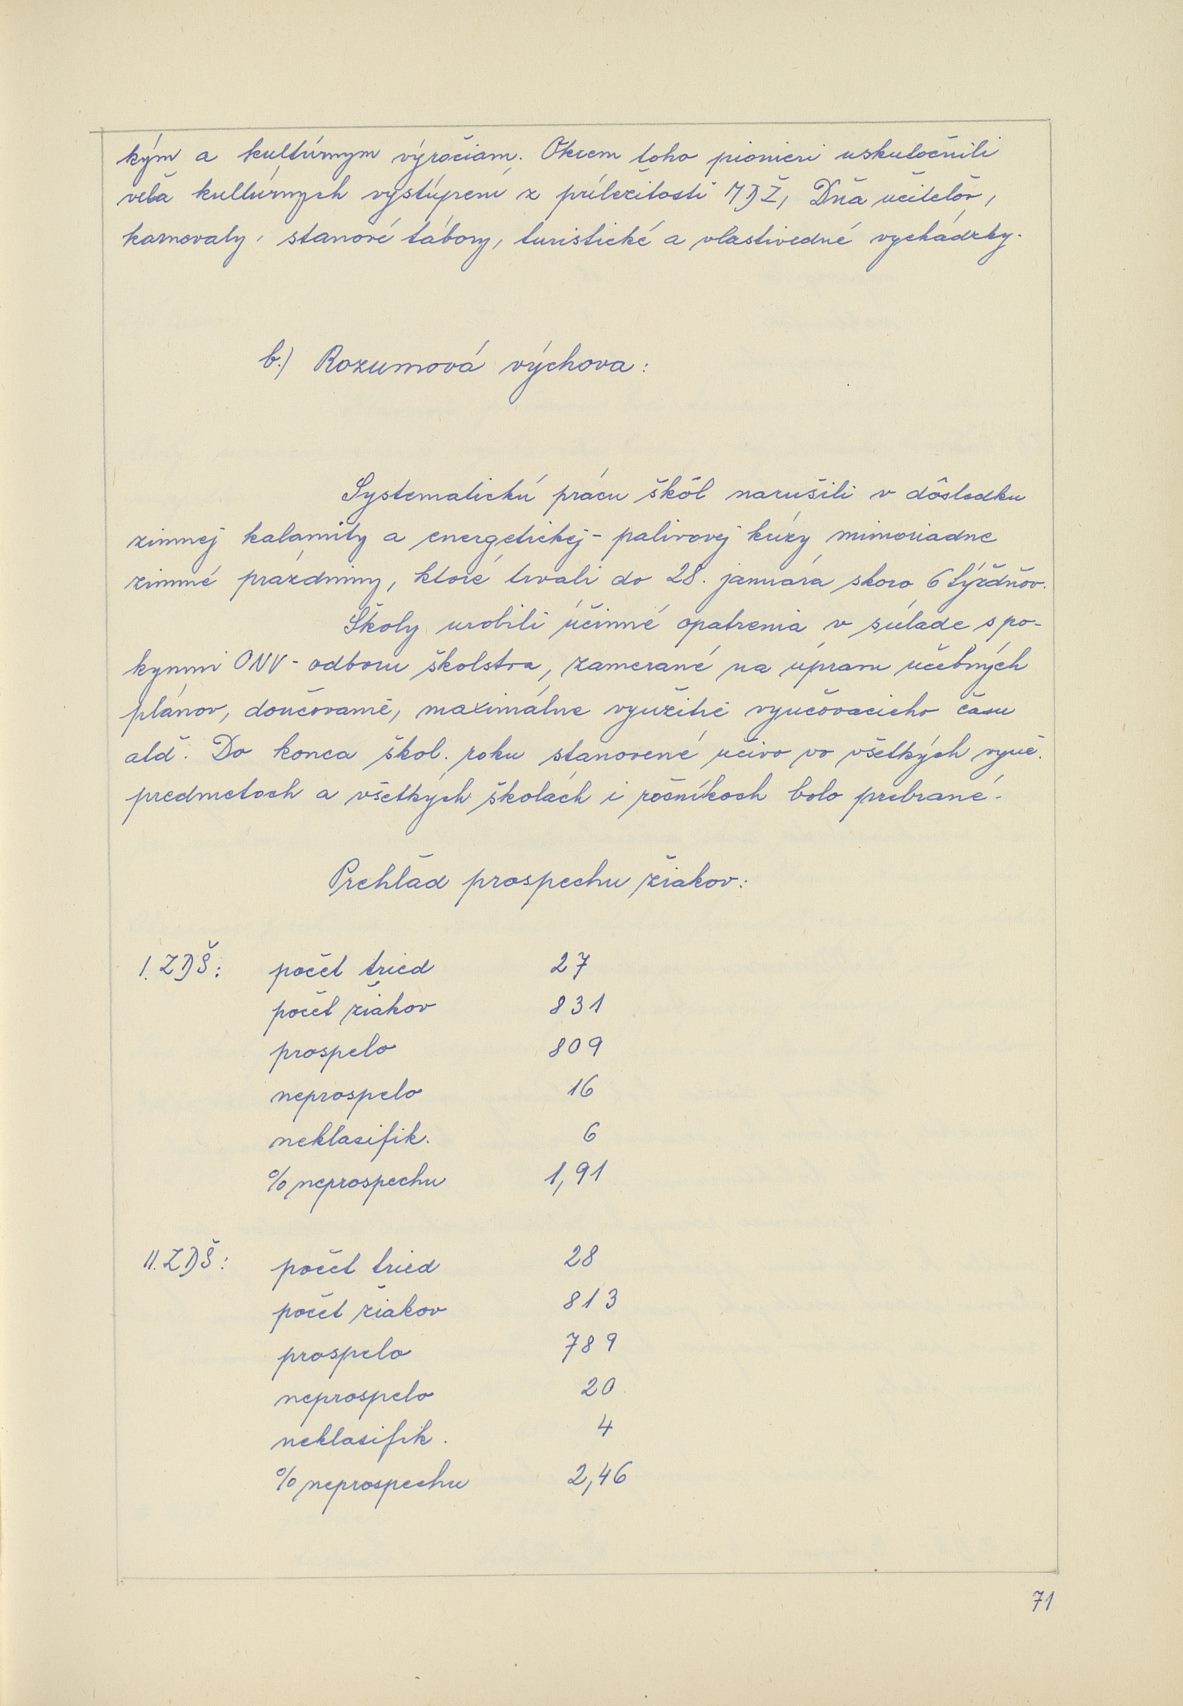 kým a kultúrnym výročiam. Okrem toho pionieri uskutočnili
veľa kultúrnych vystúpení z príležitosti MDŽ, Dňa učiteľov,
karnevaly, stanové tábory, turistické a vlastivedné vychádzky.
b.) Rozumová výchova:
Systematickú prácu škôl narušili v dôsledku
zimnej kalamity a energetickej-palivovej krízy mimoriadne
zimné prázdniny, ktoré trvali do 28. januára skoro 6 týždňov.
Školy urobili účinné opatrenia v súlade s po-
kynmi ONV-odboru školstva, zamerané na úpravu učebných
plánov, doučovanie, maximálne využitie vyučovacieho času
atď. Do konca škol. roku stanovené učivo vo všetkých vyuč.
predmetoch a všetkých školách i ročníkoch bolo prebrané.
Prehľad prospechu žiakov:
I. ZDŠ: počet tried 27
počet žiakov 831
prospelo 809
neprospelo 16
neklasifik. 6
% neprospechu 1,91
II. ZDŠ: počet tried 28
počet žiakov 813
prospelo 789
neprospelo 20
neklasifik. 4
% neprospechu 2,46
71